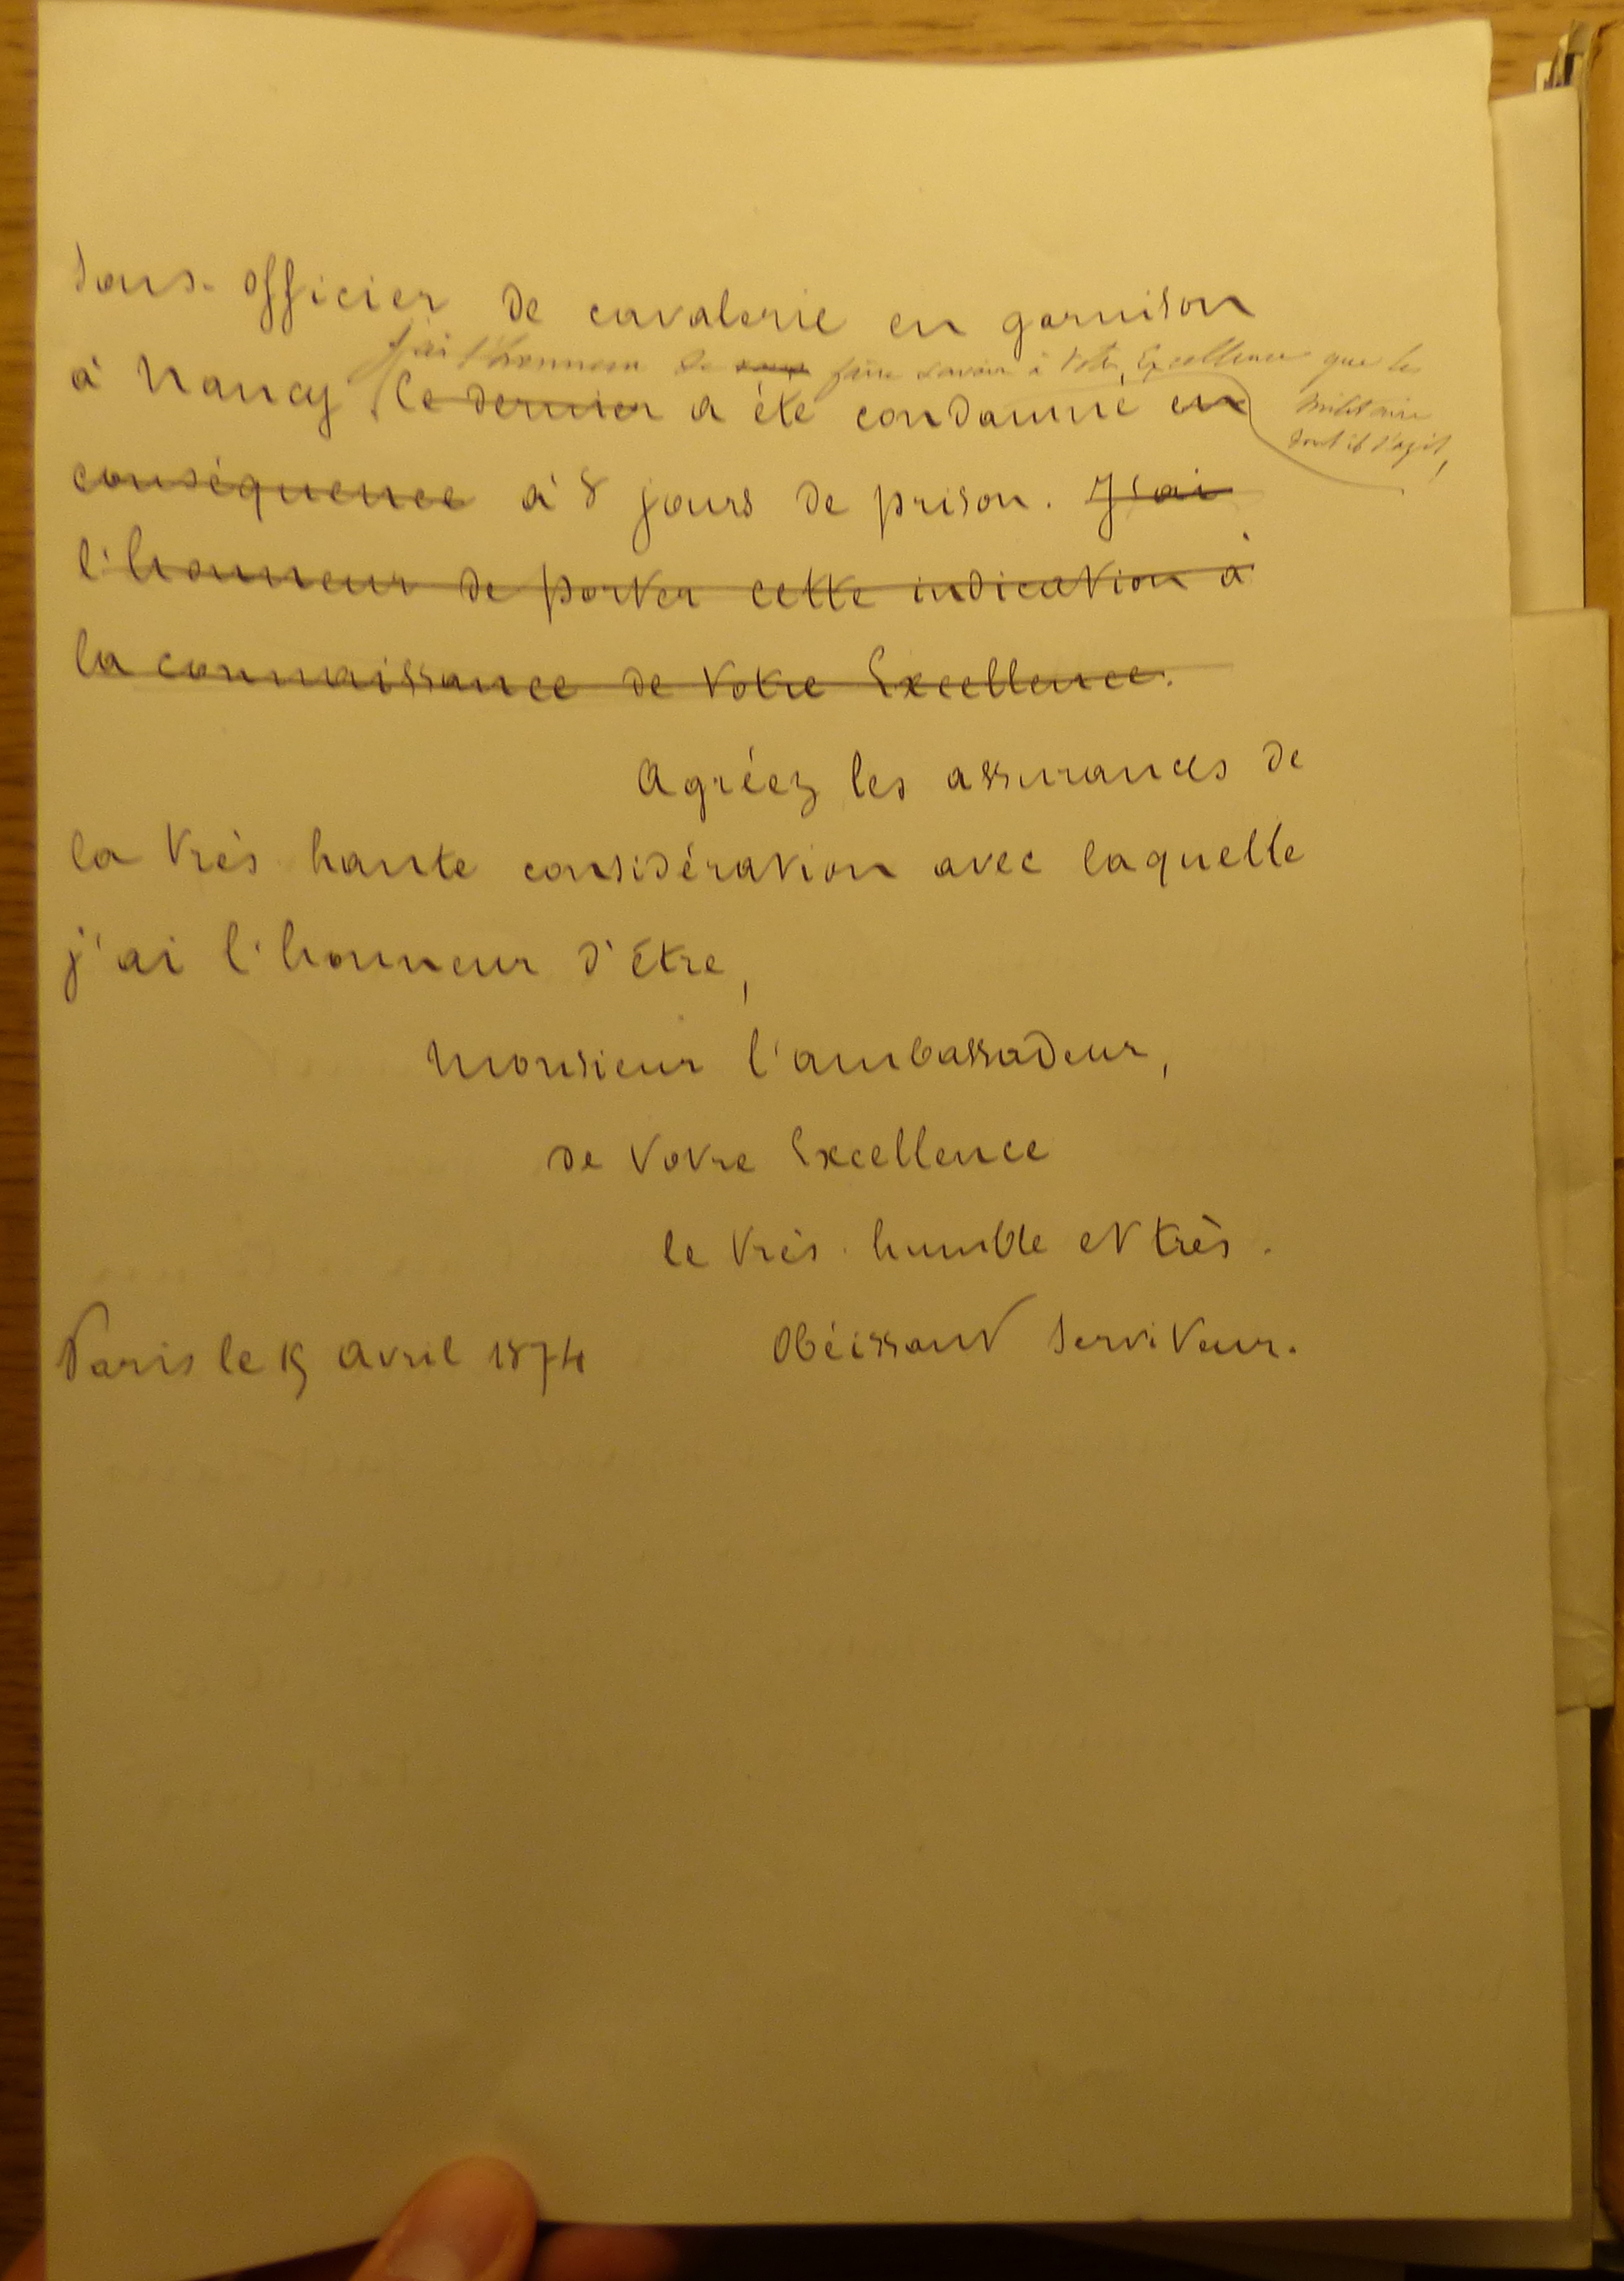 Sous-officier de cavalerie en garnison
j'ai l'honneur de vous faire savoir à Votre Excellence que le
militaire
dont il s'agit,
à Nancy. Ce dernier a été condamné en
conséquence à 8 jours de prison. J'ai
l'honneur de porter cette indication à
la connaissance de Votre Excellence.
Agréez les assurances de
la très haute considération avec laquelle
j'ai l'honneur d'être,
Monsieur l'ambassadeur,
de Votre Excellence
le très humble et très
obéissant serviteur.
Paris le 15 avril 1874